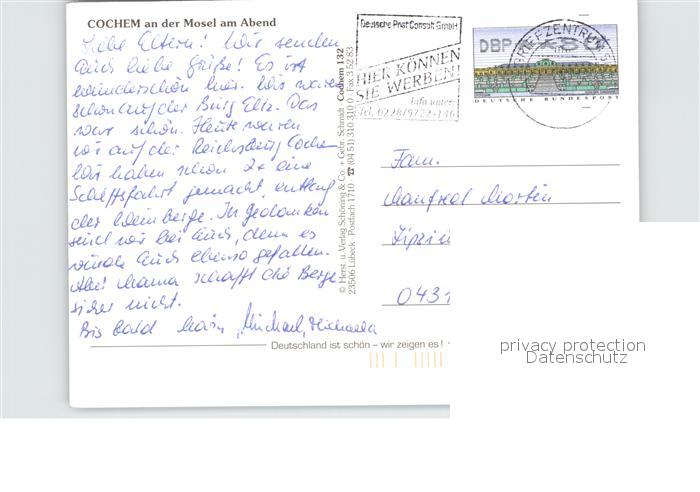 COCHEM an der Mosel am Abend
Liebe Eltern! Wir senden
Euch liebe Grüße! Es ist
wunderschön hier. Wir waren
schon auf der Burg Eltz. Das
war schön. Heute waren
wir auf der Reichsburg Cochem
Wir haben schon 2x eine
Schiffsfahrt gemacht, entlang
der Weinberge. In Gedanken
sind wir bei Euch, denn es
würde Euch ebenso gefallen.
Aber Mama schafft die Berge
sicher nicht.
Bis bald Michael, Michaela
© Herst. u. Verlag Schöning & Co. + Gebr. Schmidt · Cochem 132
23506 Lübeck · Postfach 1710 · ☎ (04 51) 310 310 · Fax 3 52 83
Deutsche Post Consult GmbH
HIER KÖNNEN
SIE WERBEN!
Info unter:
Tel. 0228/9722-146
DBP
DEUTSCHE BUNDESPOST
BRIEFZENTRUM
Fam.
Manfred
Leipzig
0431
Deutschland ist schön – wir zeigen es!
privacy protection
Datenschutz